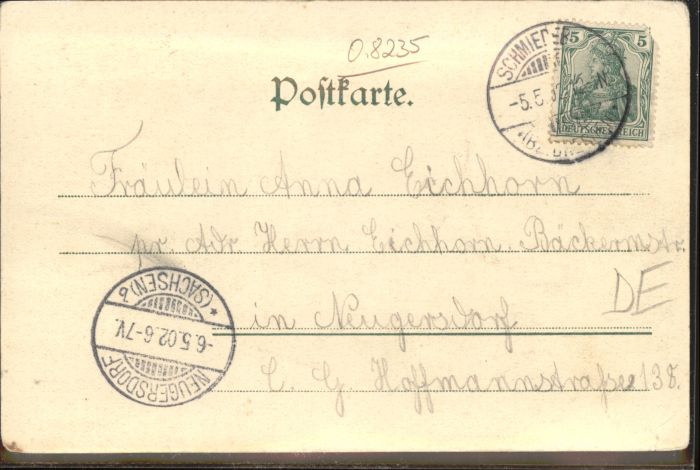 0.8235
Postkarte.
SCHMIEDE
-5.5.
(BZ. DRE
5 5
DEUTSCHES REICH
Fräulein Anna Eichhorn
pr. Adr. Herrn Eichhorn Bäckermstr.
in Neugersdorf
C. G. Hoffmannstraße 138.
DE
NEUGERSDORF
-6.5.02.6-7V.
* (SACHSEN) b